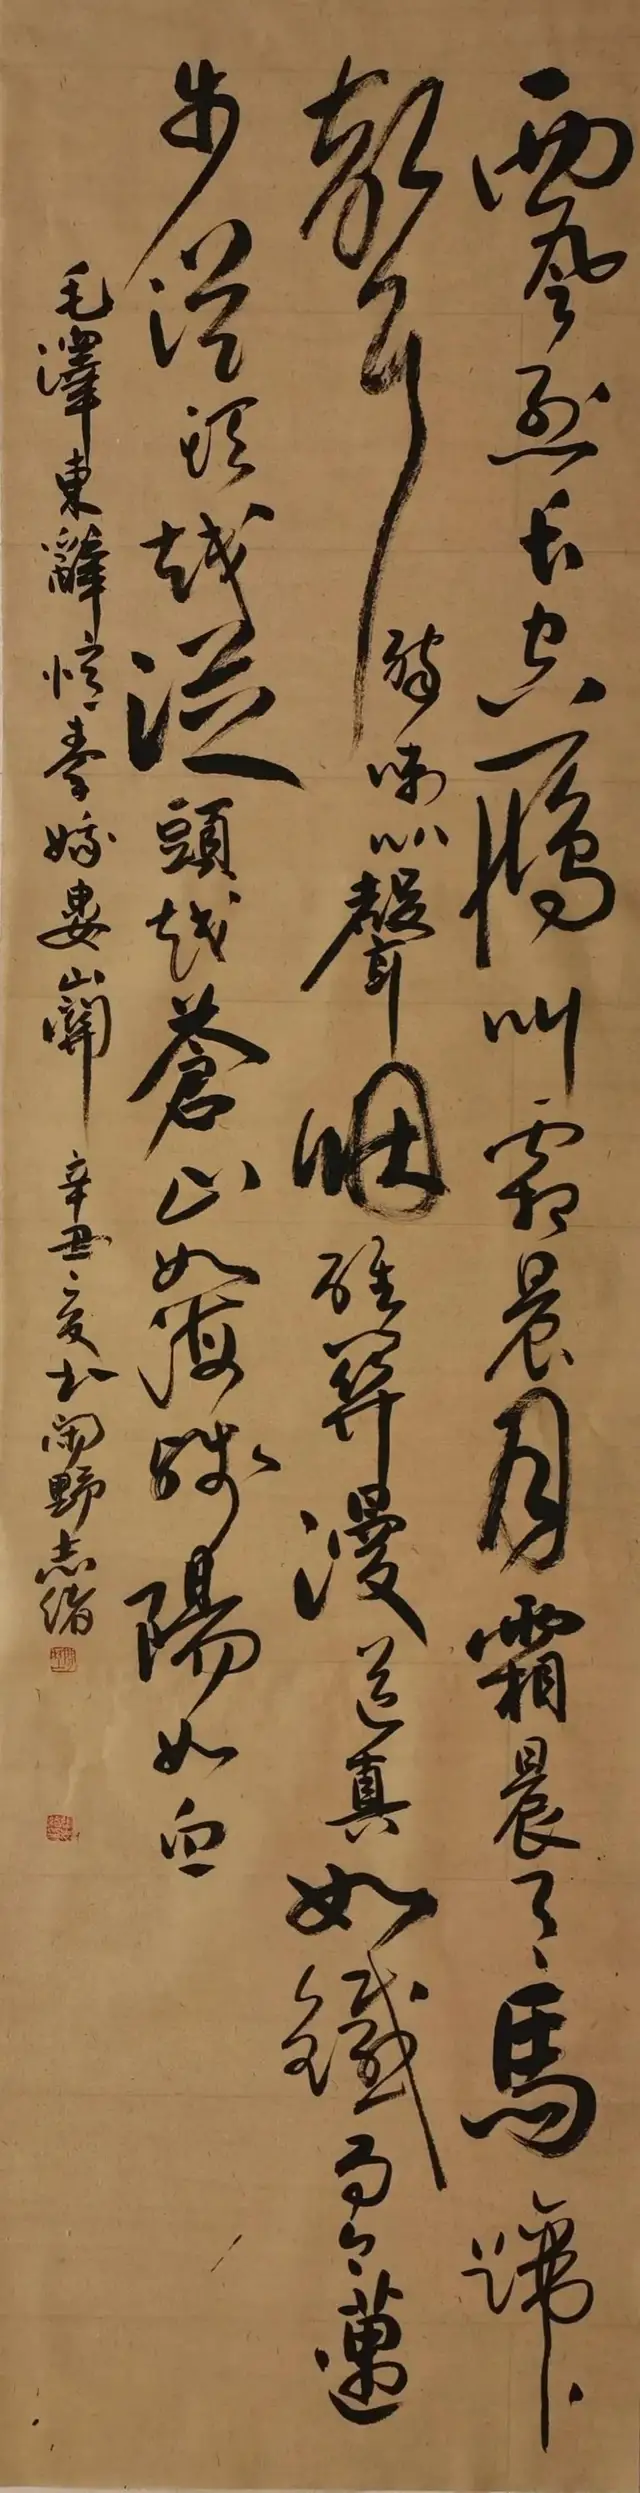 西風烈長空鴈叫霜晨月霜晨月馬蹄
聲碎喇叭聲咽雄關漫道真如鐵而今邁
步從頭越從頭越蒼山如海殘陽如血
毛澤東辭憶秦娥婁山關 辛丑夏書野志